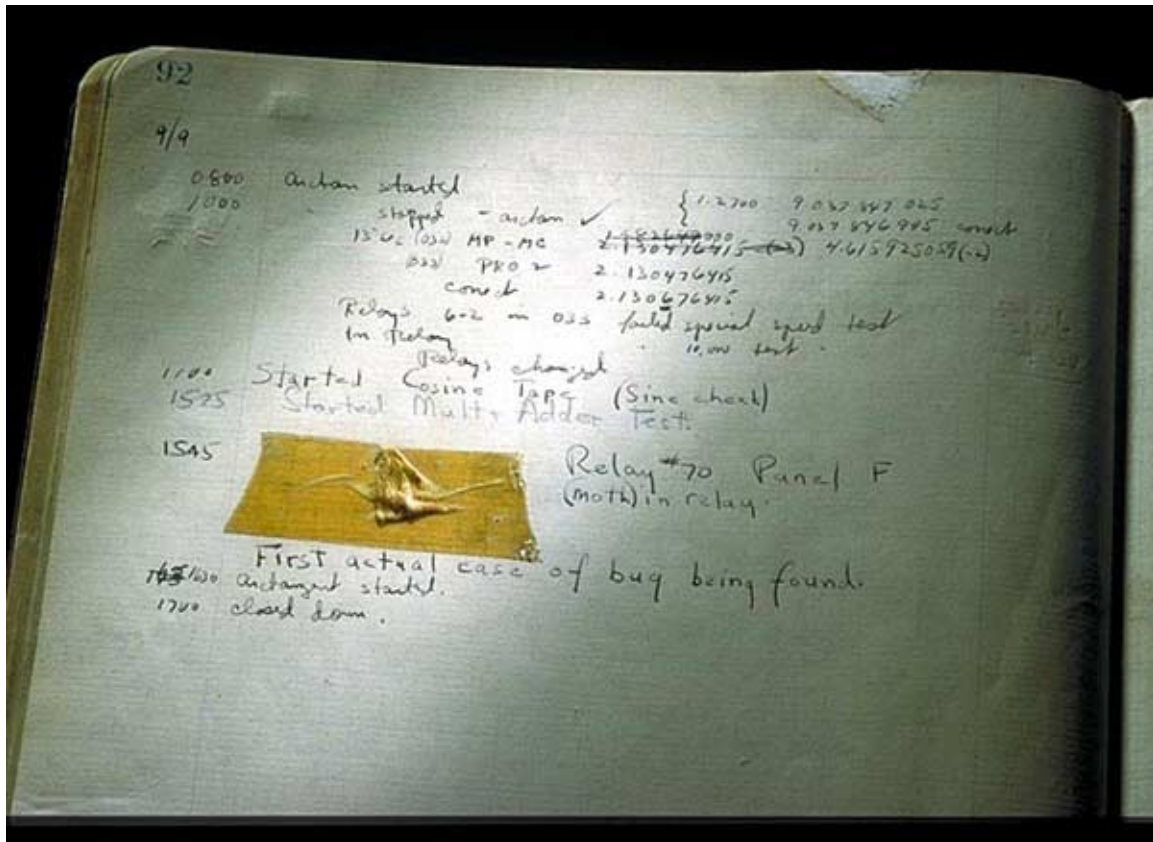 92
9/9
0800 antan started
1000 " stopped - antan ✓ { 1.2700 9.037 847 025
9.037 846 995 correct
13"uc (032) MP - MC 2.130476415 (-3) 4.615925059(-2)
(033) PRO 2 2.130476415
correct 2.130676415
Relays 6-2 in 033 failed special speed test
In Relay " 10,000 test.
Relays changed
1100 Started Cosine Tape (Sine check)
1525 Started Mult + Adder Test.
1545 Relay #70 Panel F
(moth) in relay.
First actual case of bug being found.
1630 antangent started.
1700 closed down.